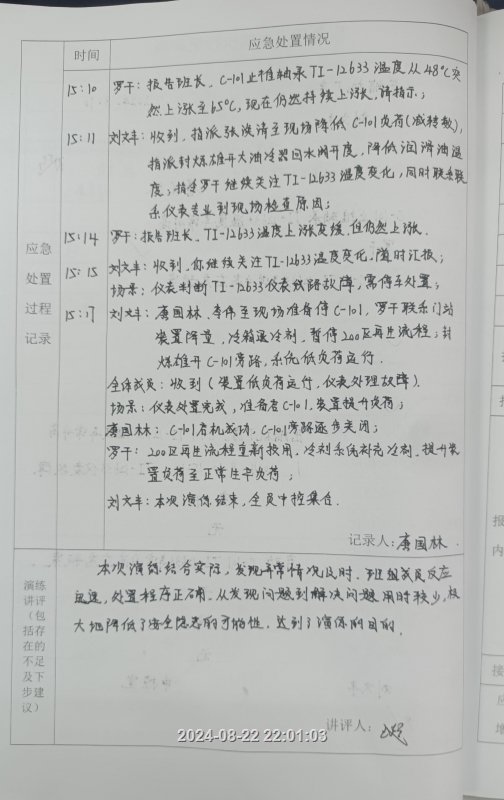 应急处置情况
时间
应急处置过程记录
15:10 罗干：报告班长，C-101止推轴承TI-12633温度从48℃突
然上涨至65℃，现在仍然持续上涨，请指示；
15:11 刘文丰：收到，指派张焕清至现场降低C-101负荷（减转数），
指派封炼雄开大油冷器回水阀开度，降低润滑油温
度；指令罗干继续关注TI-12633温度变化，同时联系联
系仪表专业到现场检查原因；
15:14 罗干：报告班长，TI-12633温度上涨变缓，但仍然上涨．
15:15 刘文丰：收到，你继续关注TI-12633温度变化，随时汇报；
场景：仪表判断TI-12633仪表线路故障，需停车处置；
15:17 刘文丰：唐国林、李伟至现场准备停C-101，罗干联系门站
装置降量，冷箱退冷剂，暂停200区再生流程；封
炼雄开C-101旁路，系统低负荷运行．
全体成员：收到（装置低负荷运行，仪表处理故障）．
场景：仪表处置完成，准备启C-101，装置提升负荷；
唐国林：C-101启机成功，C-101旁路逐步关闭；
罗干：200区再生流程重新投用，冷剂系统补充冷剂，提升装
置负荷至正常生产负荷；
刘文丰：本次演练结束，全员中控集合．
记录人：唐国林
演练讲评（包括存在的不足及下步建议）
本次演练结合实际，发现异常情况及时，班组成员反应
迅速，处置程序正确，从发现问题到解决问题用时较少，极
大地降低了安全隐患的可能性，达到了演练的目的．
讲评人：
2024-08-22 22:01:03
报
内
接
应
地